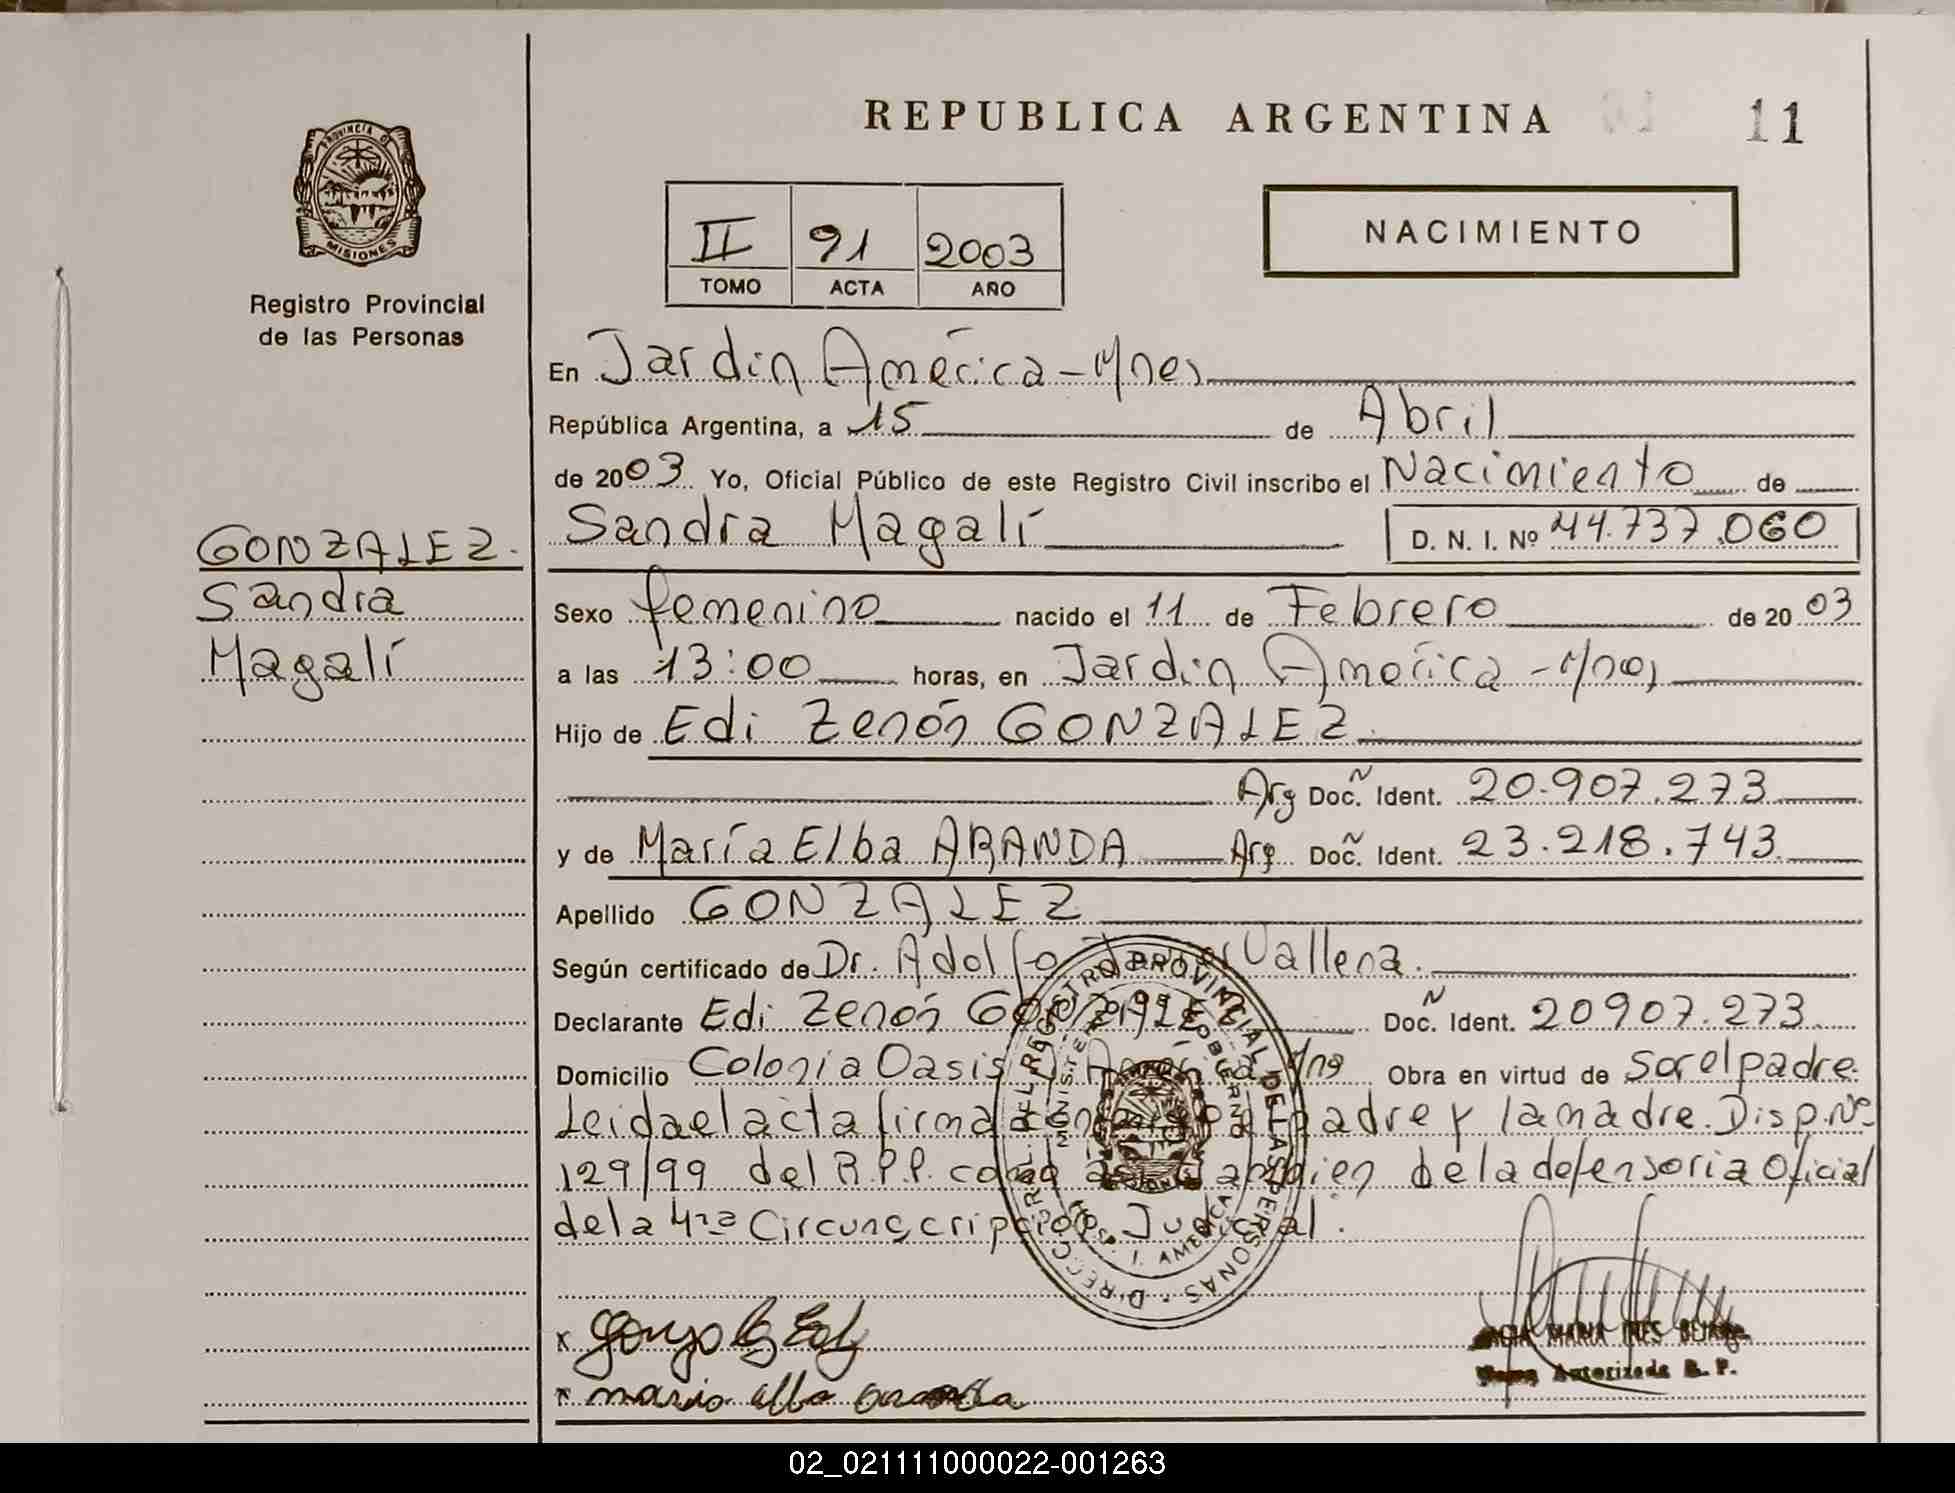 REPUBLICA ARGENTINA
11
PROVINCIA D
MISIONES
Registro Provincial
de las Personas
II 91 2003
TOMO ACTA AÑO
NACIMIENTO
En Jardin América - Mnes
República Argentina, a 15 de Abril
de 2003 Yo, Oficial Público de este Registro Civil inscribo el Nacimiento de
Sandra Magalí D. N. I. Nº 44.737.060
GONZALEZ.
Sandra
Magalí
Sexo femenino nacido el 11 de Febrero de 2003
a las 13:00 horas, en Jardin América - Mnes
Hijo de Edi Zenón GONZALEZ
Arg Doc. Ident. 20.907.273
y de María Elba ARANDA Arg Doc. Ident. 23.218.743
Apellido GONZALEZ
Según certificado de Dr. Adolfo Vallena.
Declarante Edi Zenón GONZALEZ Doc. Ident. 20907.273
Domicilio Colonia Oasis Obra en virtud de Ser el padre.
Leida el acta firma padre y la madre. Disp. Nº
129/99 del R.P.P. como de la defensoria Oficial
de la 4ta Circunscripcion Judicial.
DIRECC. GRAL. DEL REGISTRO PROVINCIAL DE LAS PERSONAS
MINISTERIO GOBIERNO
AMERICA
x Gonzalez Edi
x maria elba aranda
MARIA INES
Autorizada R. P.
02_021111000022-001263